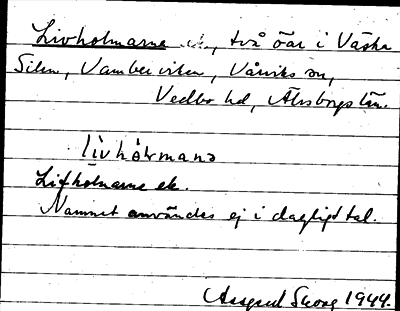 Livholmarne ek., två öar i Västra
Silen, Vamberviken, Vårviks sn,
Vedbo hd, Älvsborgs län.
livhålmana
Lifholmarne ek.
Namnet användes ej i dagligt tal.
Skoog 1944.